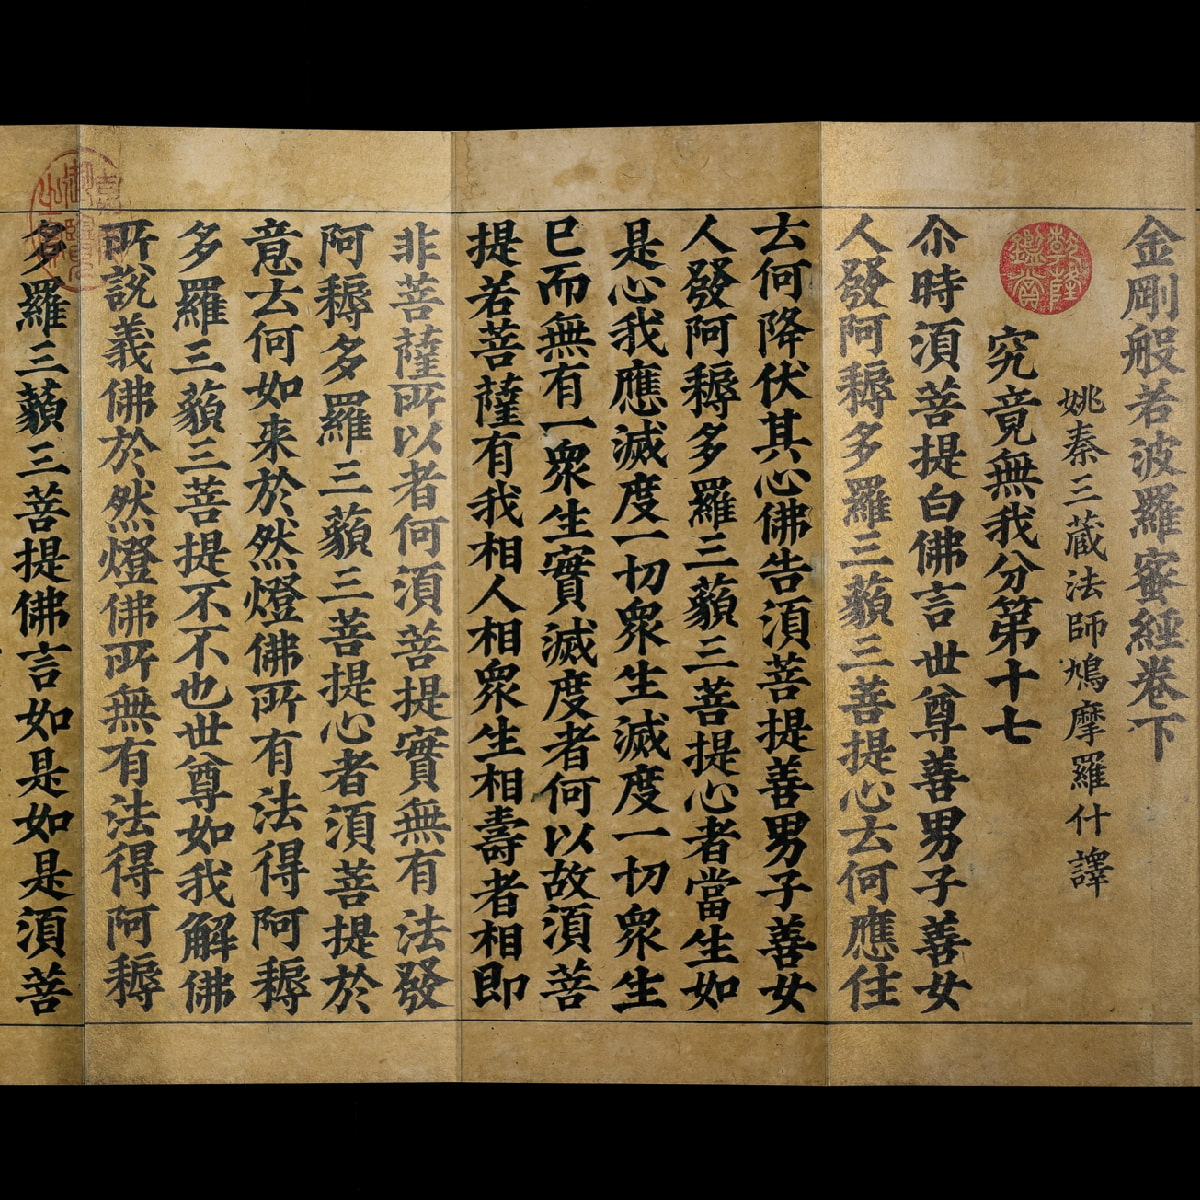 金剛般若波羅蜜經卷下
姚秦三藏法師鳩摩羅什譯
乾隆鑑賞
究竟無我分第十七
尒時須菩提白佛言世尊善男子善女
人發阿耨多羅三藐三菩提心云何應住
云何降伏其心佛告須菩提善男子善女
人發阿耨多羅三藐三菩提心者當生如
是心我應滅度一切眾生滅度一切眾生
已而無有一眾生實滅度者何以故須菩
提若菩薩有我相人相眾生相壽者相即
非菩薩所以者何須菩提實無有法發
阿耨多羅三藐三菩提心者須菩提於
意云何如來於然燈佛所有法得阿耨
多羅三藐三菩提不不也世尊如我解佛
所說義佛於然燈佛所無有法得阿耨
多羅三藐三菩提佛言如是如是須菩